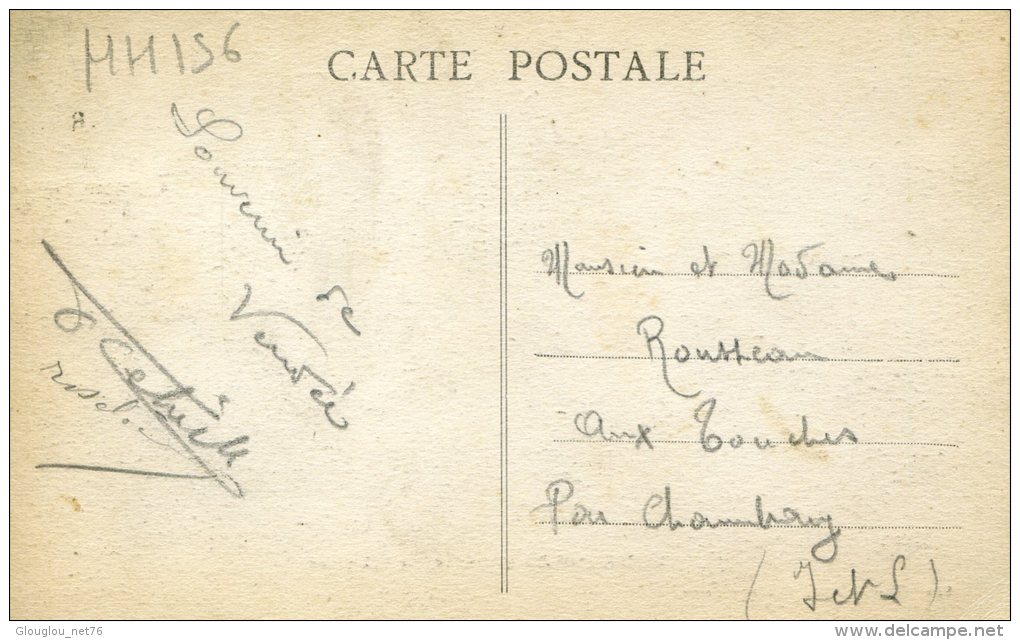 HH 156
CARTE POSTALE
Souvenir
de
Vendée
Monsieur et Madame
Rousseau
Aux Touches
Par Chambray
(I et L).
Glouglou_net76
delcampe.net